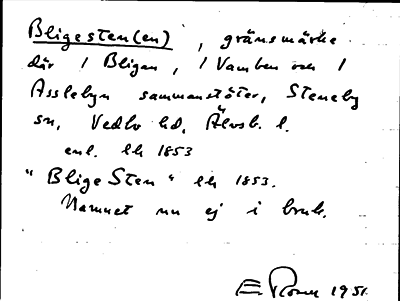 Bligesten(en), gränsmärke
där / Bligen, / Vamben och /
Asslebyn sammanstöter, Steneby
sn, Vedbo hd, Älvsb. l.
enl. lh 1853
"Blige Sten" lh 1853.
Namnet nu ej i bruk.
1951